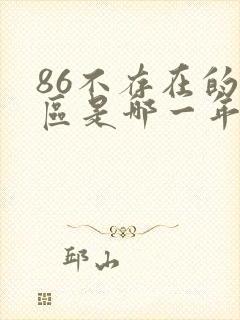 86不存在的
區是哪一年
邱山